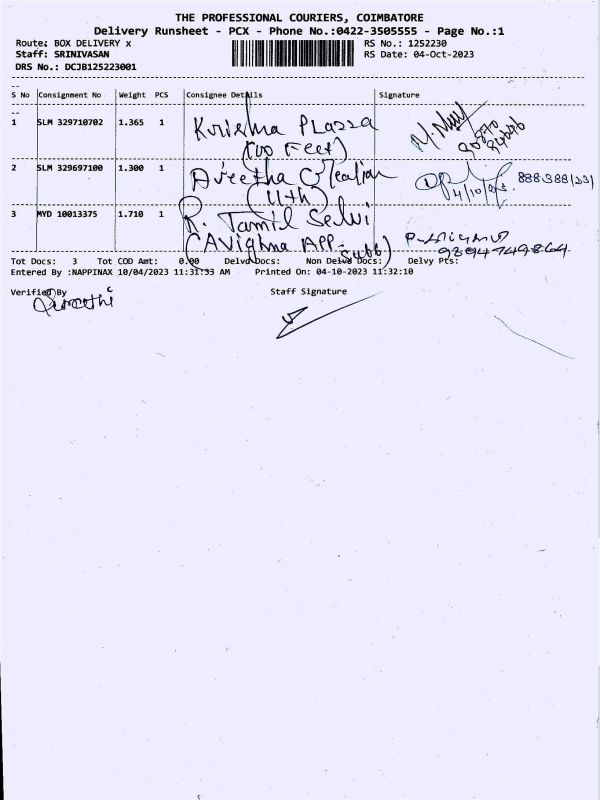 THE PROFESSIONAL COURIERS, COIMBATORE
Delivery Runsheet - PCX - Phone No.:0422-3505555 - Page No.:1
Route: BOX DELIVERY x
RS No.: 1252230
Staff: SRINIVASAN
RS Date: 04-Oct-2023
DRS No.: DCJB125223001
S No Consignment No Weight PCS Consignee Details Signature
1 SLM 329710702 1.365 1 Krishna PLazza
(100 Feet)
2 SLM 329697100 1.300 1 Avectha Creation 4/10/23. 888388123)
(11th)
3 MYD 10013375 1.710 1 R. Tamil Selvi
(AVighna APP- Subb) 9894749864
Tot Docs: 3 Tot COD Amt: 0.00 Delvd Docs: Non Delvd Docs: Delvy Pts:
Entered By :NAPPINAX 10/04/2023 11:31:33 AM Printed On: 04-10-2023 11:32:10
Verified By Staff Signature